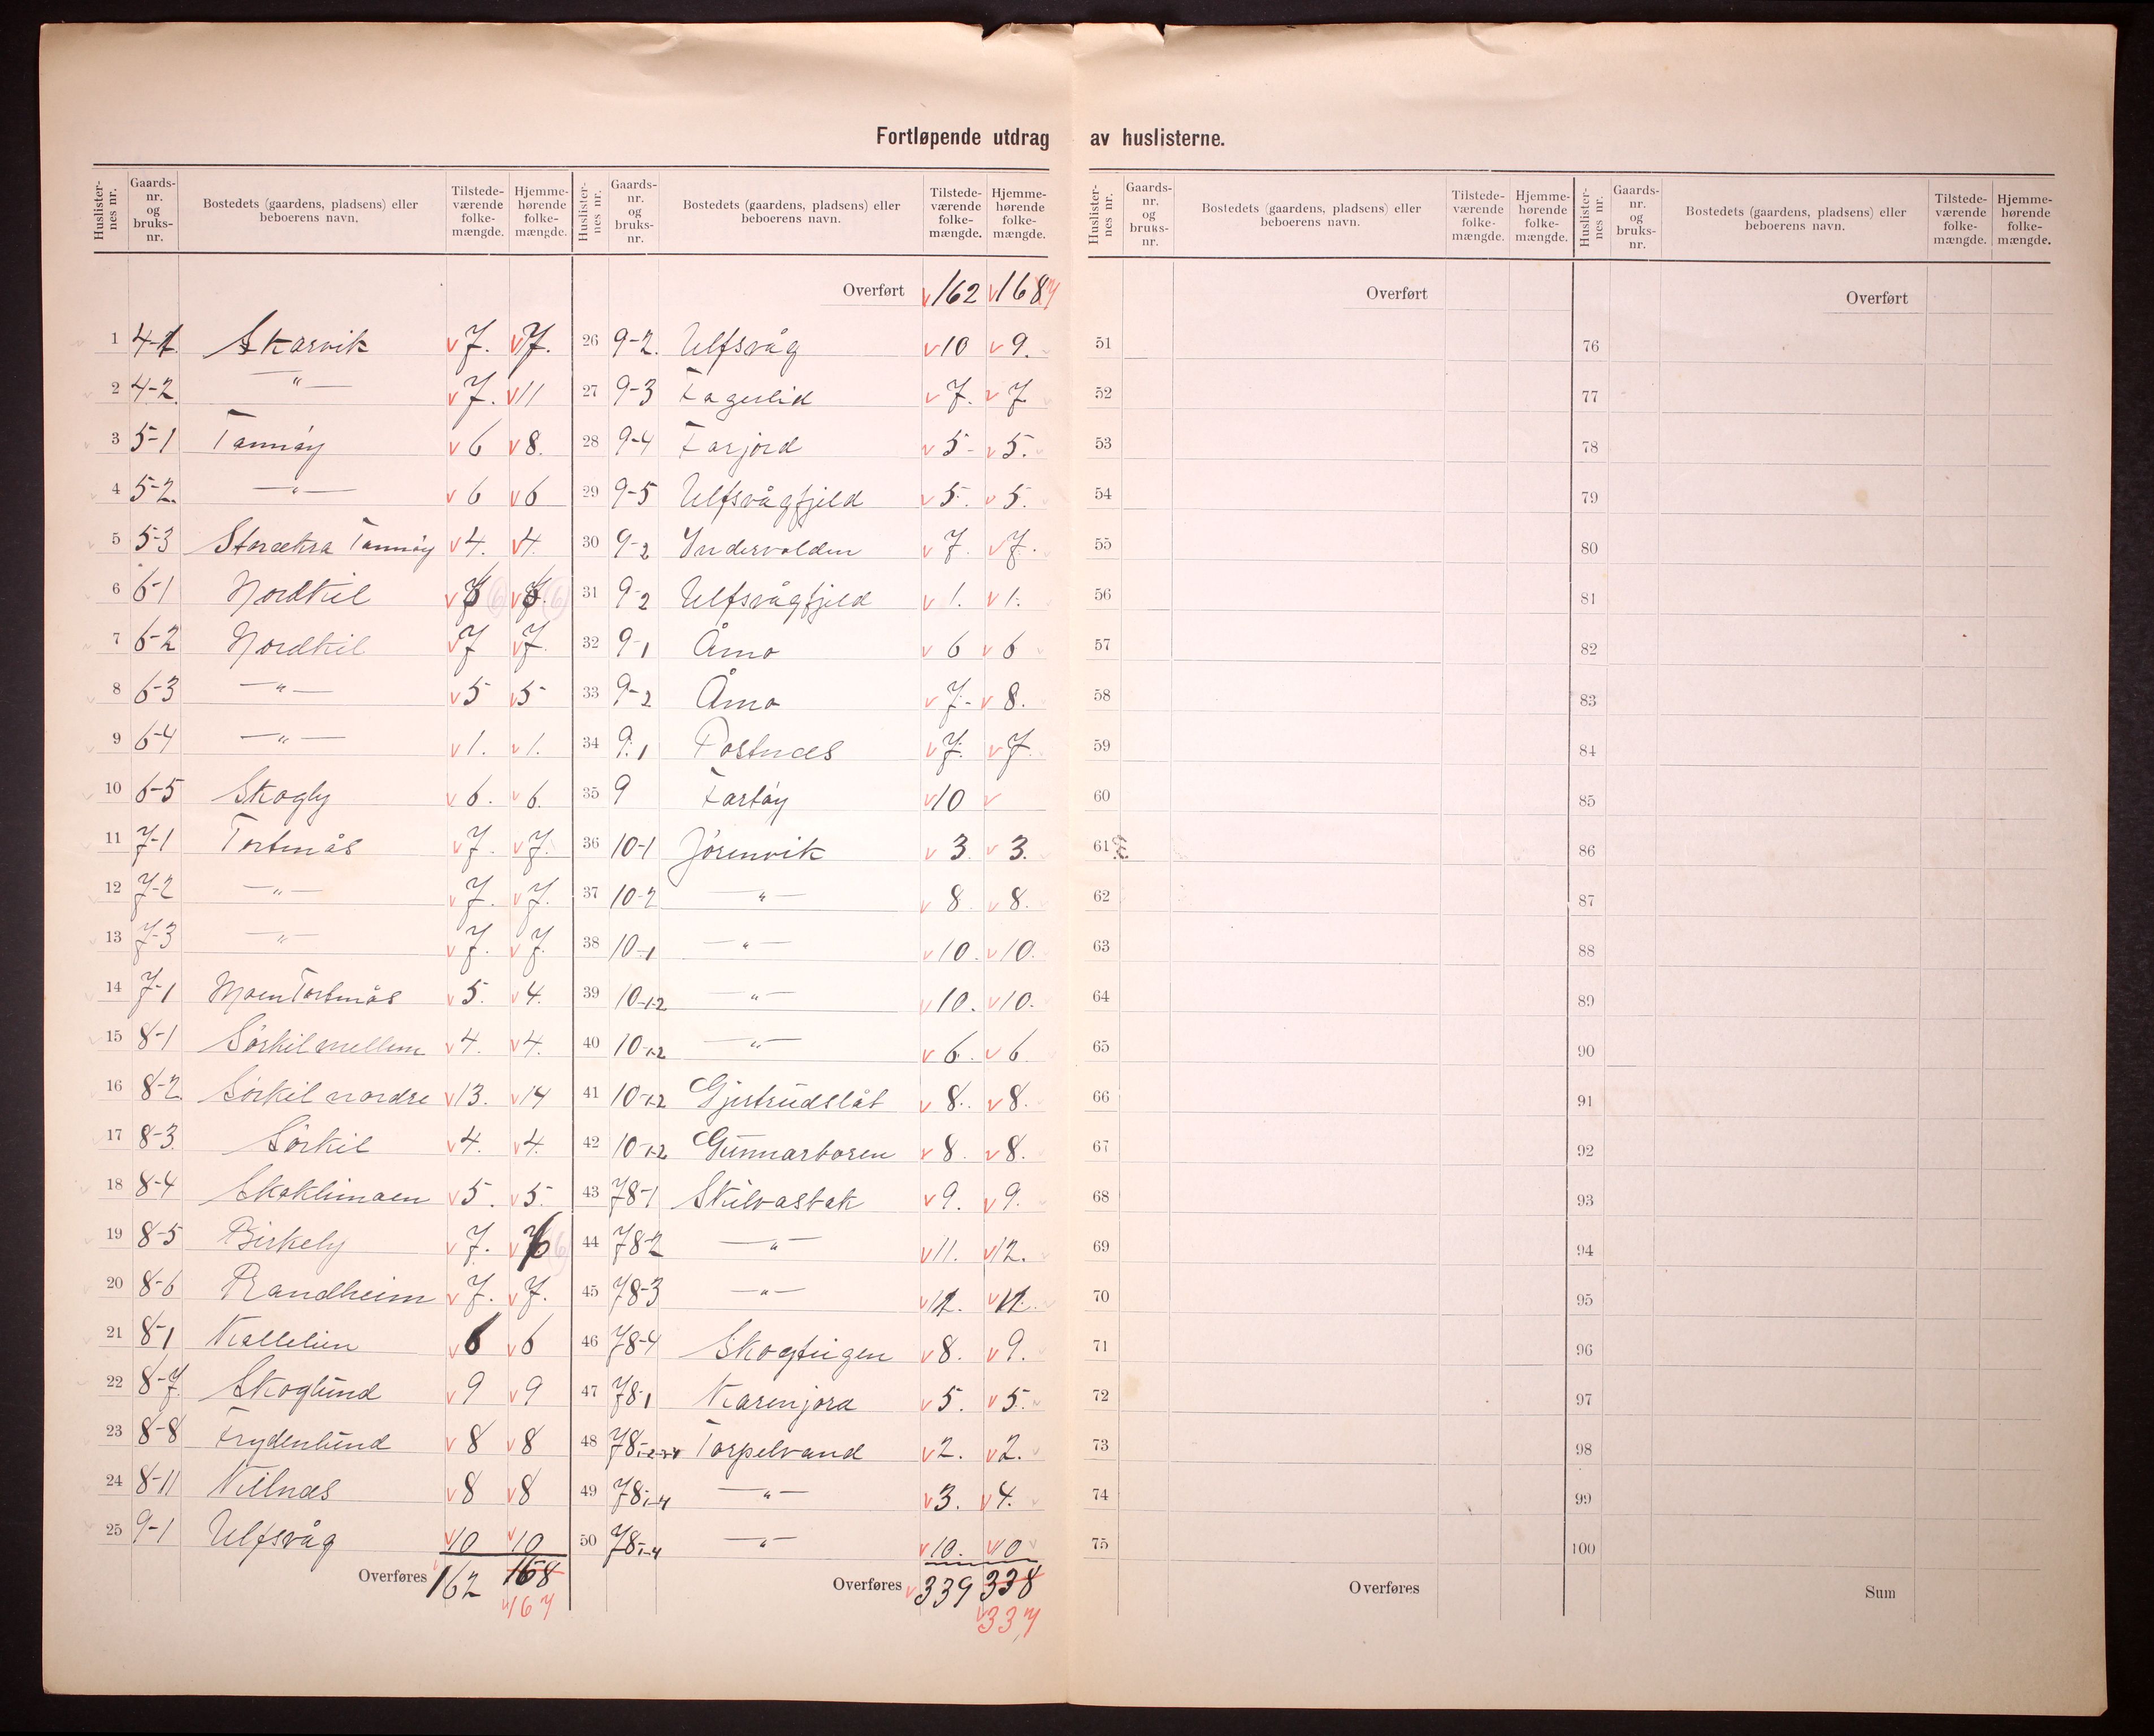 Fortløpende utdrag av huslisterne.
Huslisternes nr. Gaards-nr. og bruks-nr. Bostedets (gaardens, pladsens) eller beboerens navn. Tilstedeværende folkemængde. Hjemmehørende folkemængde.
1 4-1. Skarvik 7. 7.
2 4-2. —"— 7. 11
3 5-1 Tannøy 6 8.
4 5-2. —"— 6 6
5 5-3 Storeetra Tannøy 4. 4.
6 6-1 Nordkil (6) (6)
7 6-2 Nordkil 7 7.
8 6-3 —"— 5 5
9 6-4 —"— 1. 1.
10 6-5 Skogly 6. 6.
11 7-1 Tortnås 7. 7.
12 7-2 —"— 7. 7.
13 7-3 —"— 7. 7.
14 7-1 Moen Tortnås 5. 4.
15 8-1 Sørkil mellem 4. 4.
16 8-2 Sørkil nordre 13. 14
17 8-3. Sørkil 4. 4.
18 8-4 Skoklimoen 5. 5.
19 8-5 Birkely 7. 6 (6)
20 8-6 Randheim 7. 7.
21 8-1 Kallelien 6 6
22 8-7. Skoglund 9 9
23 8-8 Frydenlund 8 8
24 8-11 Kilnæs 8 8
25 9-1 Ulfsvåg 10 10
Overføres 162 168
167
Huslisternes nr. Gaards-nr. og bruks-nr. Bostedets (gaardens, pladsens) eller beboerens navn. Tilstedeværende folkemængde. Hjemmehørende folkemængde.
Overført 162 168 7
26 9-2. Ulfsvåg 10 9.
27 9-3 Fagerlid 7. 7
28 9-4 Farjord 5- 5.
29 9-5 Ulfsvågfjeld 5. 5.
30 9-2 Indervolden 7. 7.
31 9-2 Ulfsvågfjeld 1. 1.
32 9-1 Åmo 6 6
33 9-2 Åmo 7.- 8.
34 9.1 Postnæs 7. 7.
35 9 Fartøy 10
36 10-1 Jørenvik 3. 3.
37 10-2 —"— 8. 8.
38 10-1 —"— 10. 10.
39 10-1-2 —"— 10. 10.
40 10-1-2 —"— 6. 6
41 10-1-2 Gjertrudslåt 8. 8.
42 10-1-2 Gunnarbosen 8. 8.
43 78-1 Skilvasbak 9. 9.
44 78-2 —"— 11. 12.
45 78-3 —"—
46 78-4 Skogtuigen 8. 9.
47 78-1 Karenjord 5. 5.
48 78 Torpelvand 2. 2.
49 78 1-4 —"— 3. 4.
50 78 1-4 —"— 10. 10
Overføres 339 338
337
Huslisternes nr. Gaards-nr. og bruks-nr. Bostedets (gaardens, pladsens) eller beboerens navn. Tilstedeværende folkemængde. Hjemmehørende folkemængde.
Overført
51
52
53
54
55
56
57
58
59
60
61
62
63
64
65
66
67
68
69
70
71
72
73
74
75
Overføres
Huslisternes nr. Gaards-nr. og bruks-nr. Bostedets (gaardens, pladsens) eller beboerens navn. Tilstedeværende folkemængde. Hjemmehørende folkemængde.
Overført
76
77
78
79
80
81
82
83
84
85
86
87
88
89
90
91
92
93
94
95
96
97
98
99
100
Sum